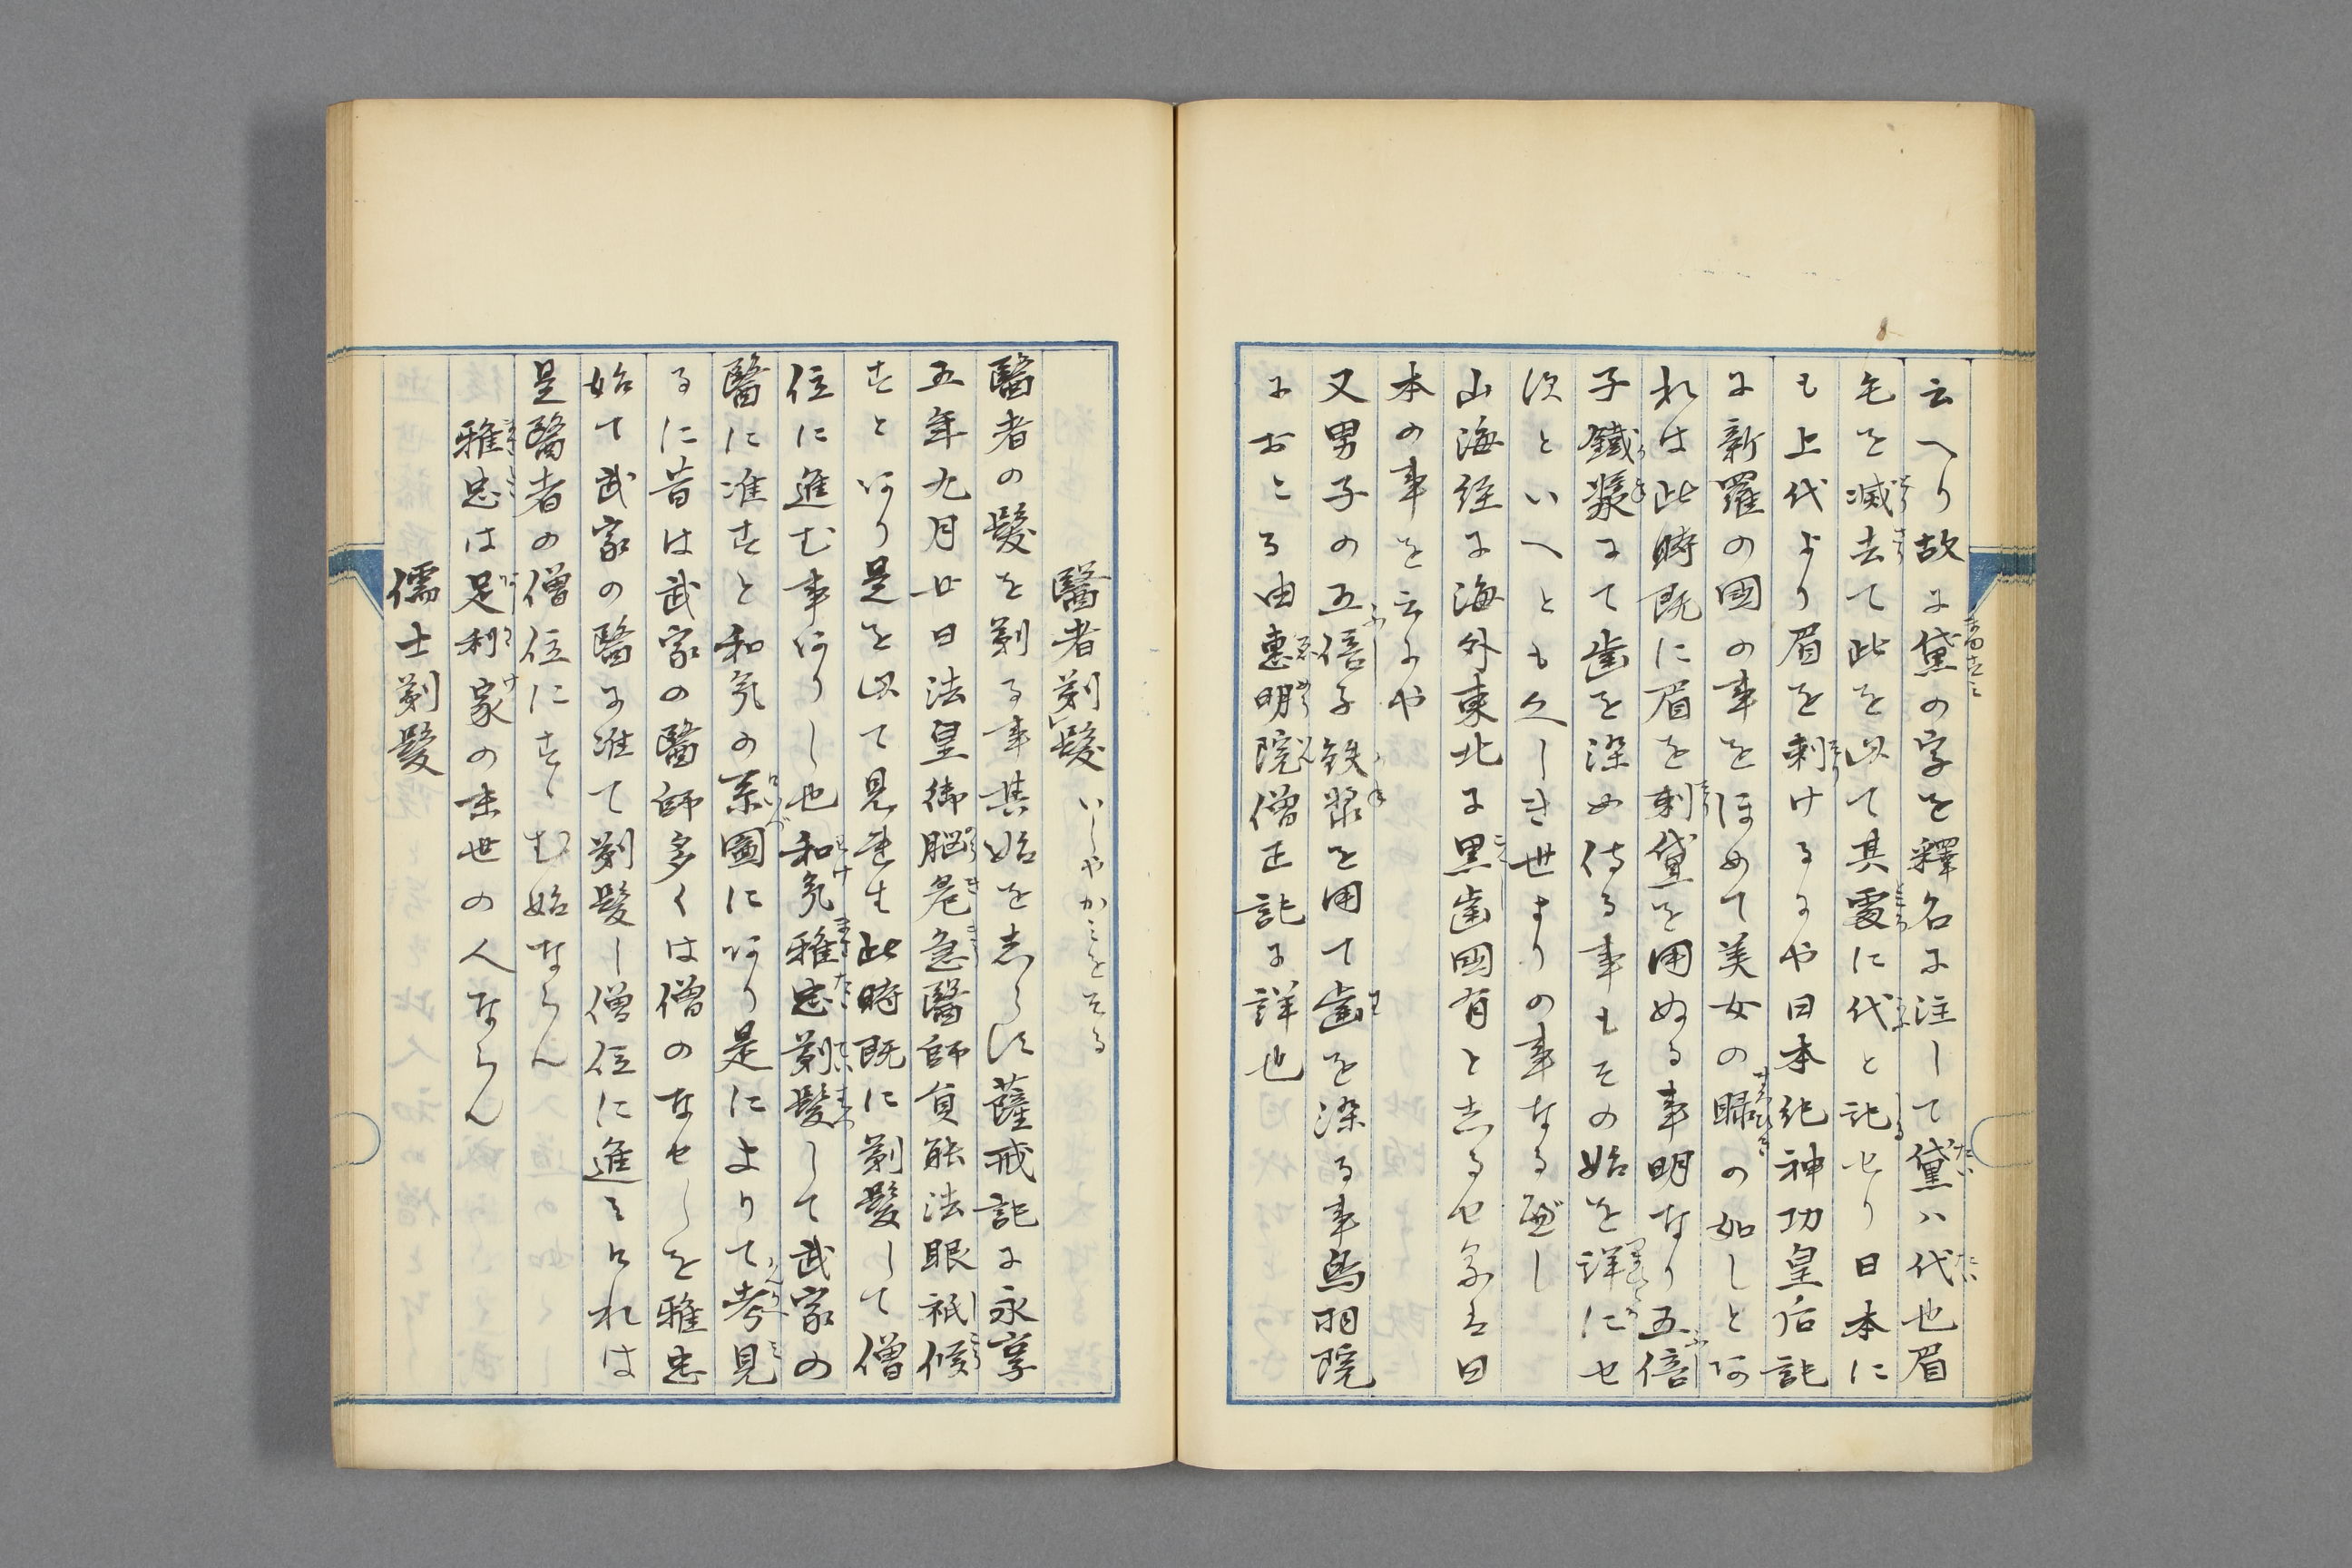 云へり故に黛の字を釋名に注して黛ハ代也眉
毛を滅去て此を以て其處に代と記せり日本に
も上代より眉を剃けるにや日本紀神功皇后記
に新羅の國の事をほめて美女の睩の如しとあ
れは此時既に眉を剃黛を用ぬる事明なり五倍
子鐵漿にて歯を染め侍る事もその始を詳にせ
すといへとも久しき世よりの事なる歟し
山海経に海外東北に黒歯國有と志るせ
本の事を云にや
又男子の五倍子铁漿を用て歯を染る事鳥羽院
におこる由恵明院僧正記に詳也
醫者剃髪 いしやかミをそる
醫者の髪を剃る事其始を志らす薩戒記に永享
五年九月廿日法皇御脳危急醫師員能法眼祗候
すとあり是を以て見
此時既に剃髪して僧
位に進む事ありし也和氣雅忠剃髪して武家の
醫に准すと和氣の系圖にあり是によりて考見
るに昔は武家の醫師多くは僧のなせしを雅忠
始て武家の醫に准て剃髪し僧位に進ミけれは
是醫者の僧位にすゝむ始ならん
雅忠は足利家の末世の人ならん
儒士剃髪